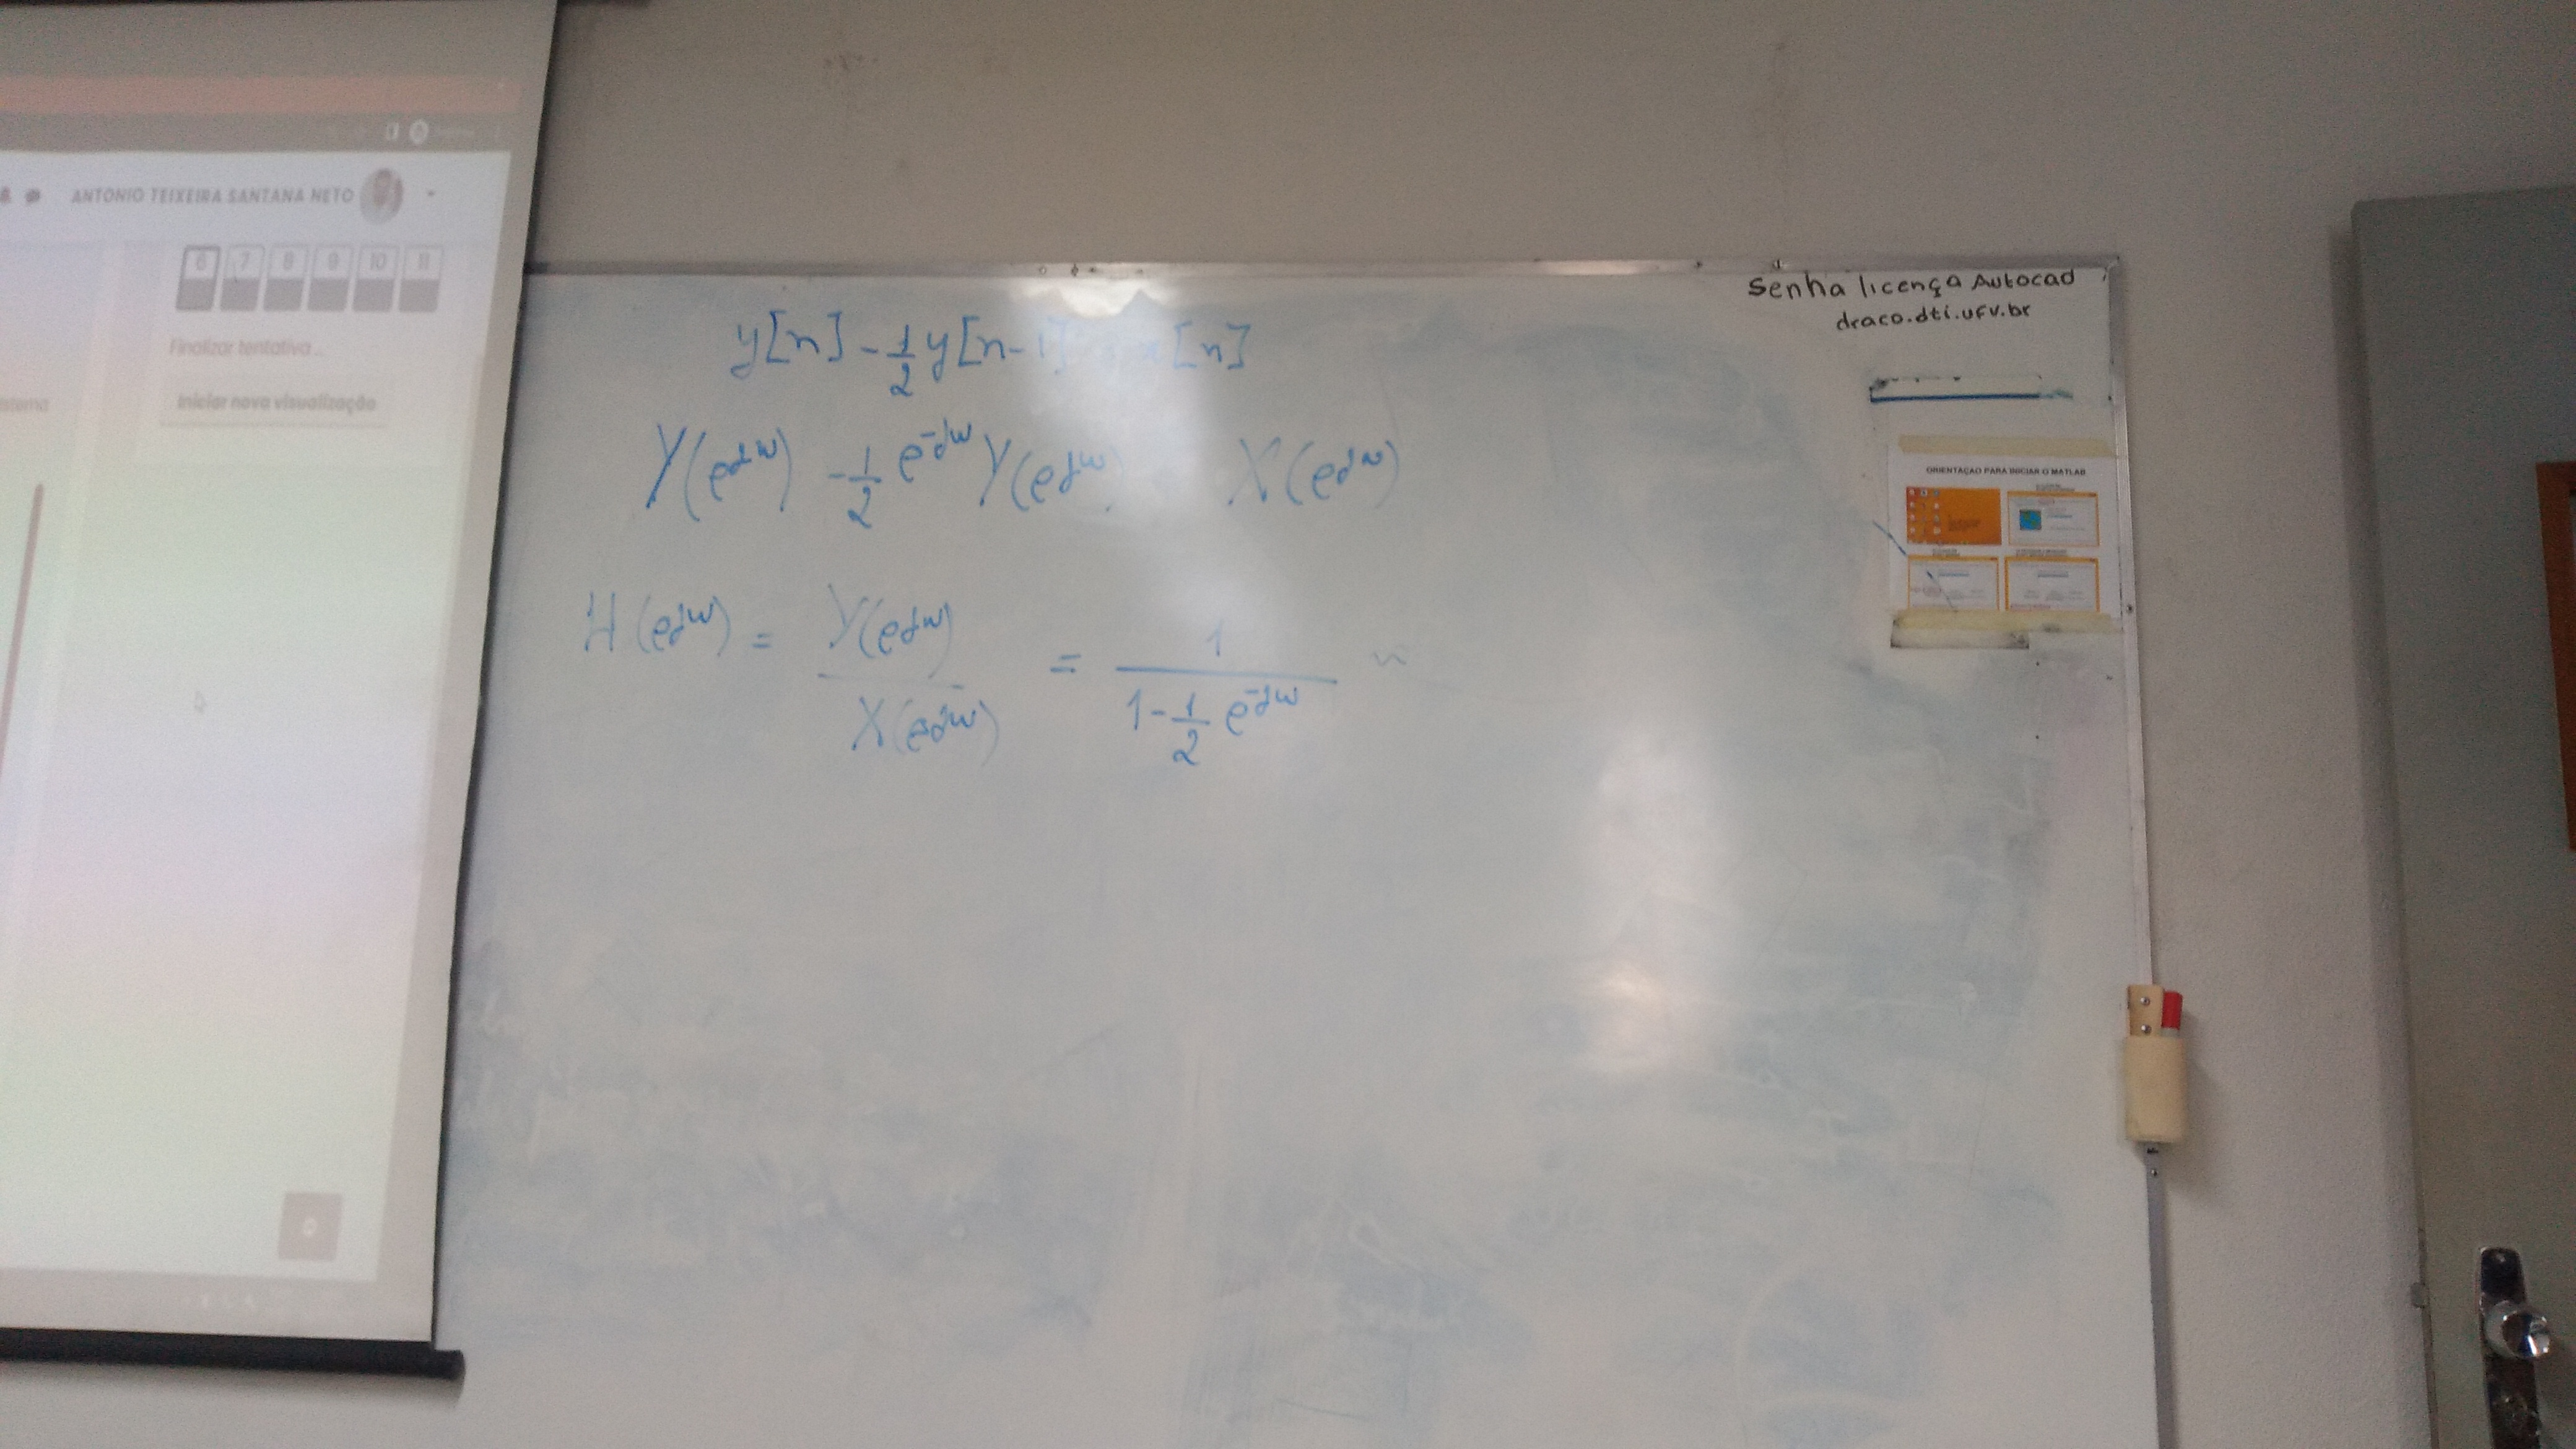 ANTONIO TEIXEIRA SANTANA NETO
6 7 8 9 10 11
Finalizar tentativa...
Iniciar nova visualização
y[n] - 1/2 y[n-1] x[n]
Y(e^jw) - 1/2 e^-jw Y(e^jw) X(e^jw)
H(e^jw) = Y(e^jw) / X(e^jw) = 1 / (1 - 1/2 e^-jw)
Senha licença Autocad
draco.dti.ufv.br
ORIENTAÇÃO PARA INICIAR O MATLAB